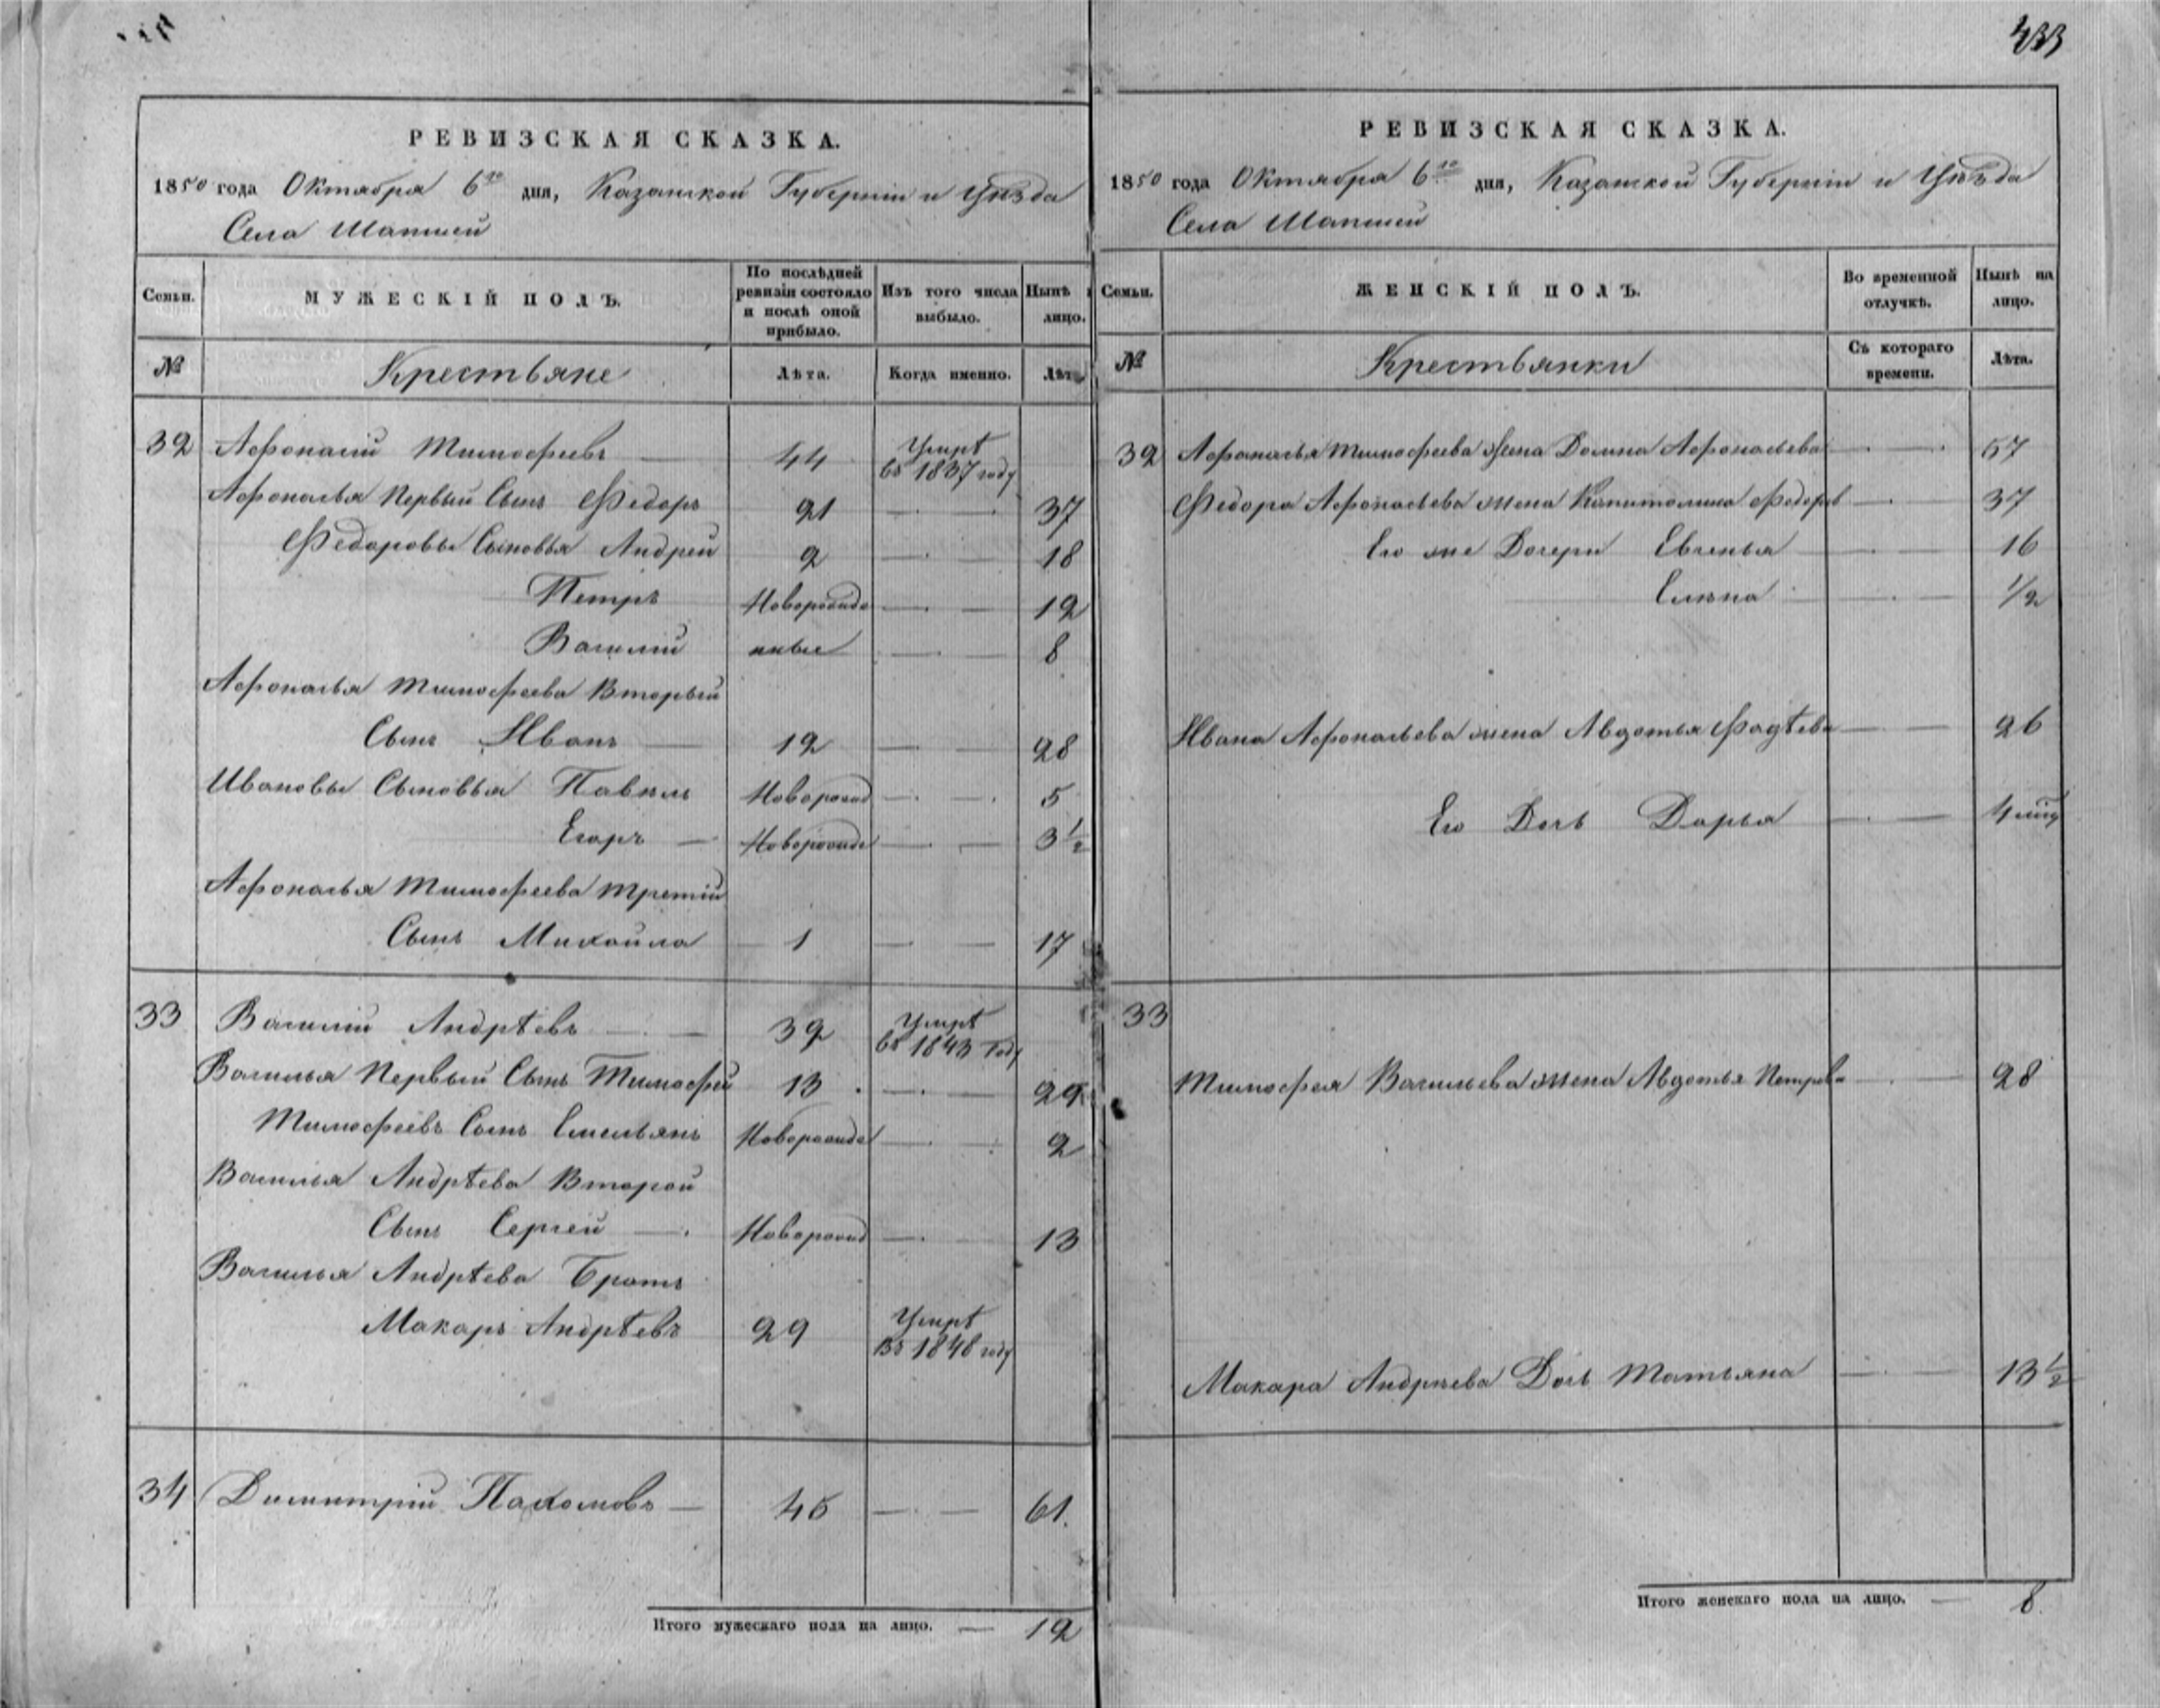 433
РЕВИЗСКАЯ СКАЗКА.
1850 года Октября 6го дня, Казанской Губерніи и Уѣзда
Села Шапшей
Семьи. МУЖЕСКІЙ ПОЛЪ. По послѣдней ревизіи состояло и послѣ оной прибыло. Изъ того числа выбыло. Нынѣ лицо.
№ Крестьяне Лѣта. Когда именно. Лѣта
32 Афонасій Тимофеевъ 44 Умрѣ въ 1837 году
Афонасья Первый Сынъ Федоръ 21 37
Федоровы Сыновья Андрей 2 18
Петръ Новорожде 12
Василій нные 8
Афонасья Тимофеева Вторый
Сынъ Иванъ 12 28
Ивановы Сыновья Павилъ Новорожд 5
Егоръ Новорожде 3 1/2
Афонасья Тимофеева Третій
Сынъ Михайла 1 17
33 Василій Андрѣевъ 39 Умрѣ въ 1843 году
Василья Первый Сынъ Тимофей 13 29
Тимофеевъ Сынъ Емельянъ Новорожде 2
Василья Андрѣева Второй
Сынъ Сергей Новорожд 13
Василья Андрѣева Братъ
Макаръ Андрѣевъ 29 Умрѣ Въ 1848 году
34 Димитрій Пахомовъ 45 61.
Итого мужескаго пола на лицо. 12
РЕВИЗСКАЯ СКАЗКА.
1850 года Октября 6го дня, Казанской Губерніи и Уѣзда
Села Шапшей
Семьи. ЖЕНСКІЙ ПОЛЪ. Во временной отлучкѣ. Нынѣ на лицо.
№ Крестьянки Съ котораго времени. Лѣта.
32 Афонасья Тимофеева Жена Домна Афонасьева 57
Федора Афонасьева жена Капитолина Федоров 37
Его же Дочери Евгенья 16
Елена 1/2
Ивана Афонасьева жена Авдотья Фадѣева 26
Его Дочь Дарья
33
Тимофея Васильева жена Авдотья Петрова 28
Макара Андреева Дочь Татьяна 13 1/2
Итого женскаго пола на лицо. 8